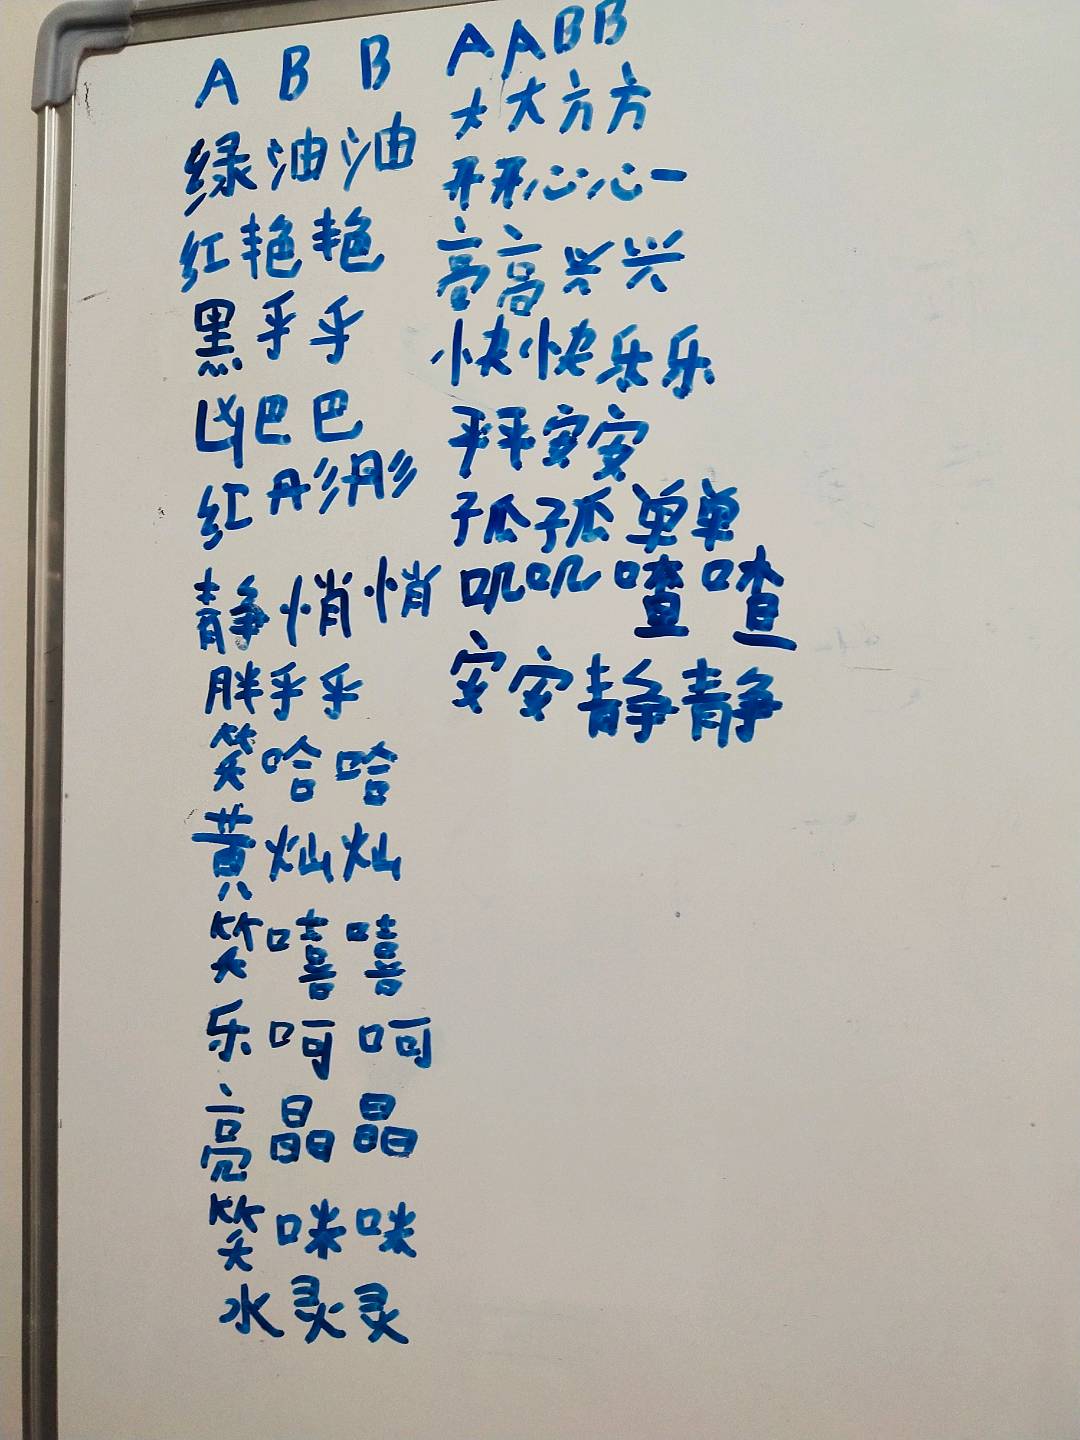 ABB
绿油油
红艳艳
黑乎乎
凶巴巴
红彤彤
静悄悄
胖乎乎
笑哈哈
黄灿灿
笑嘻嘻
乐呵呵
亮晶晶
笑咪咪
水灵灵
AABB
大大方方
开开心心
高高兴兴
快快乐乐
平平安安
孤孤单单
叽叽喳喳
安安静静